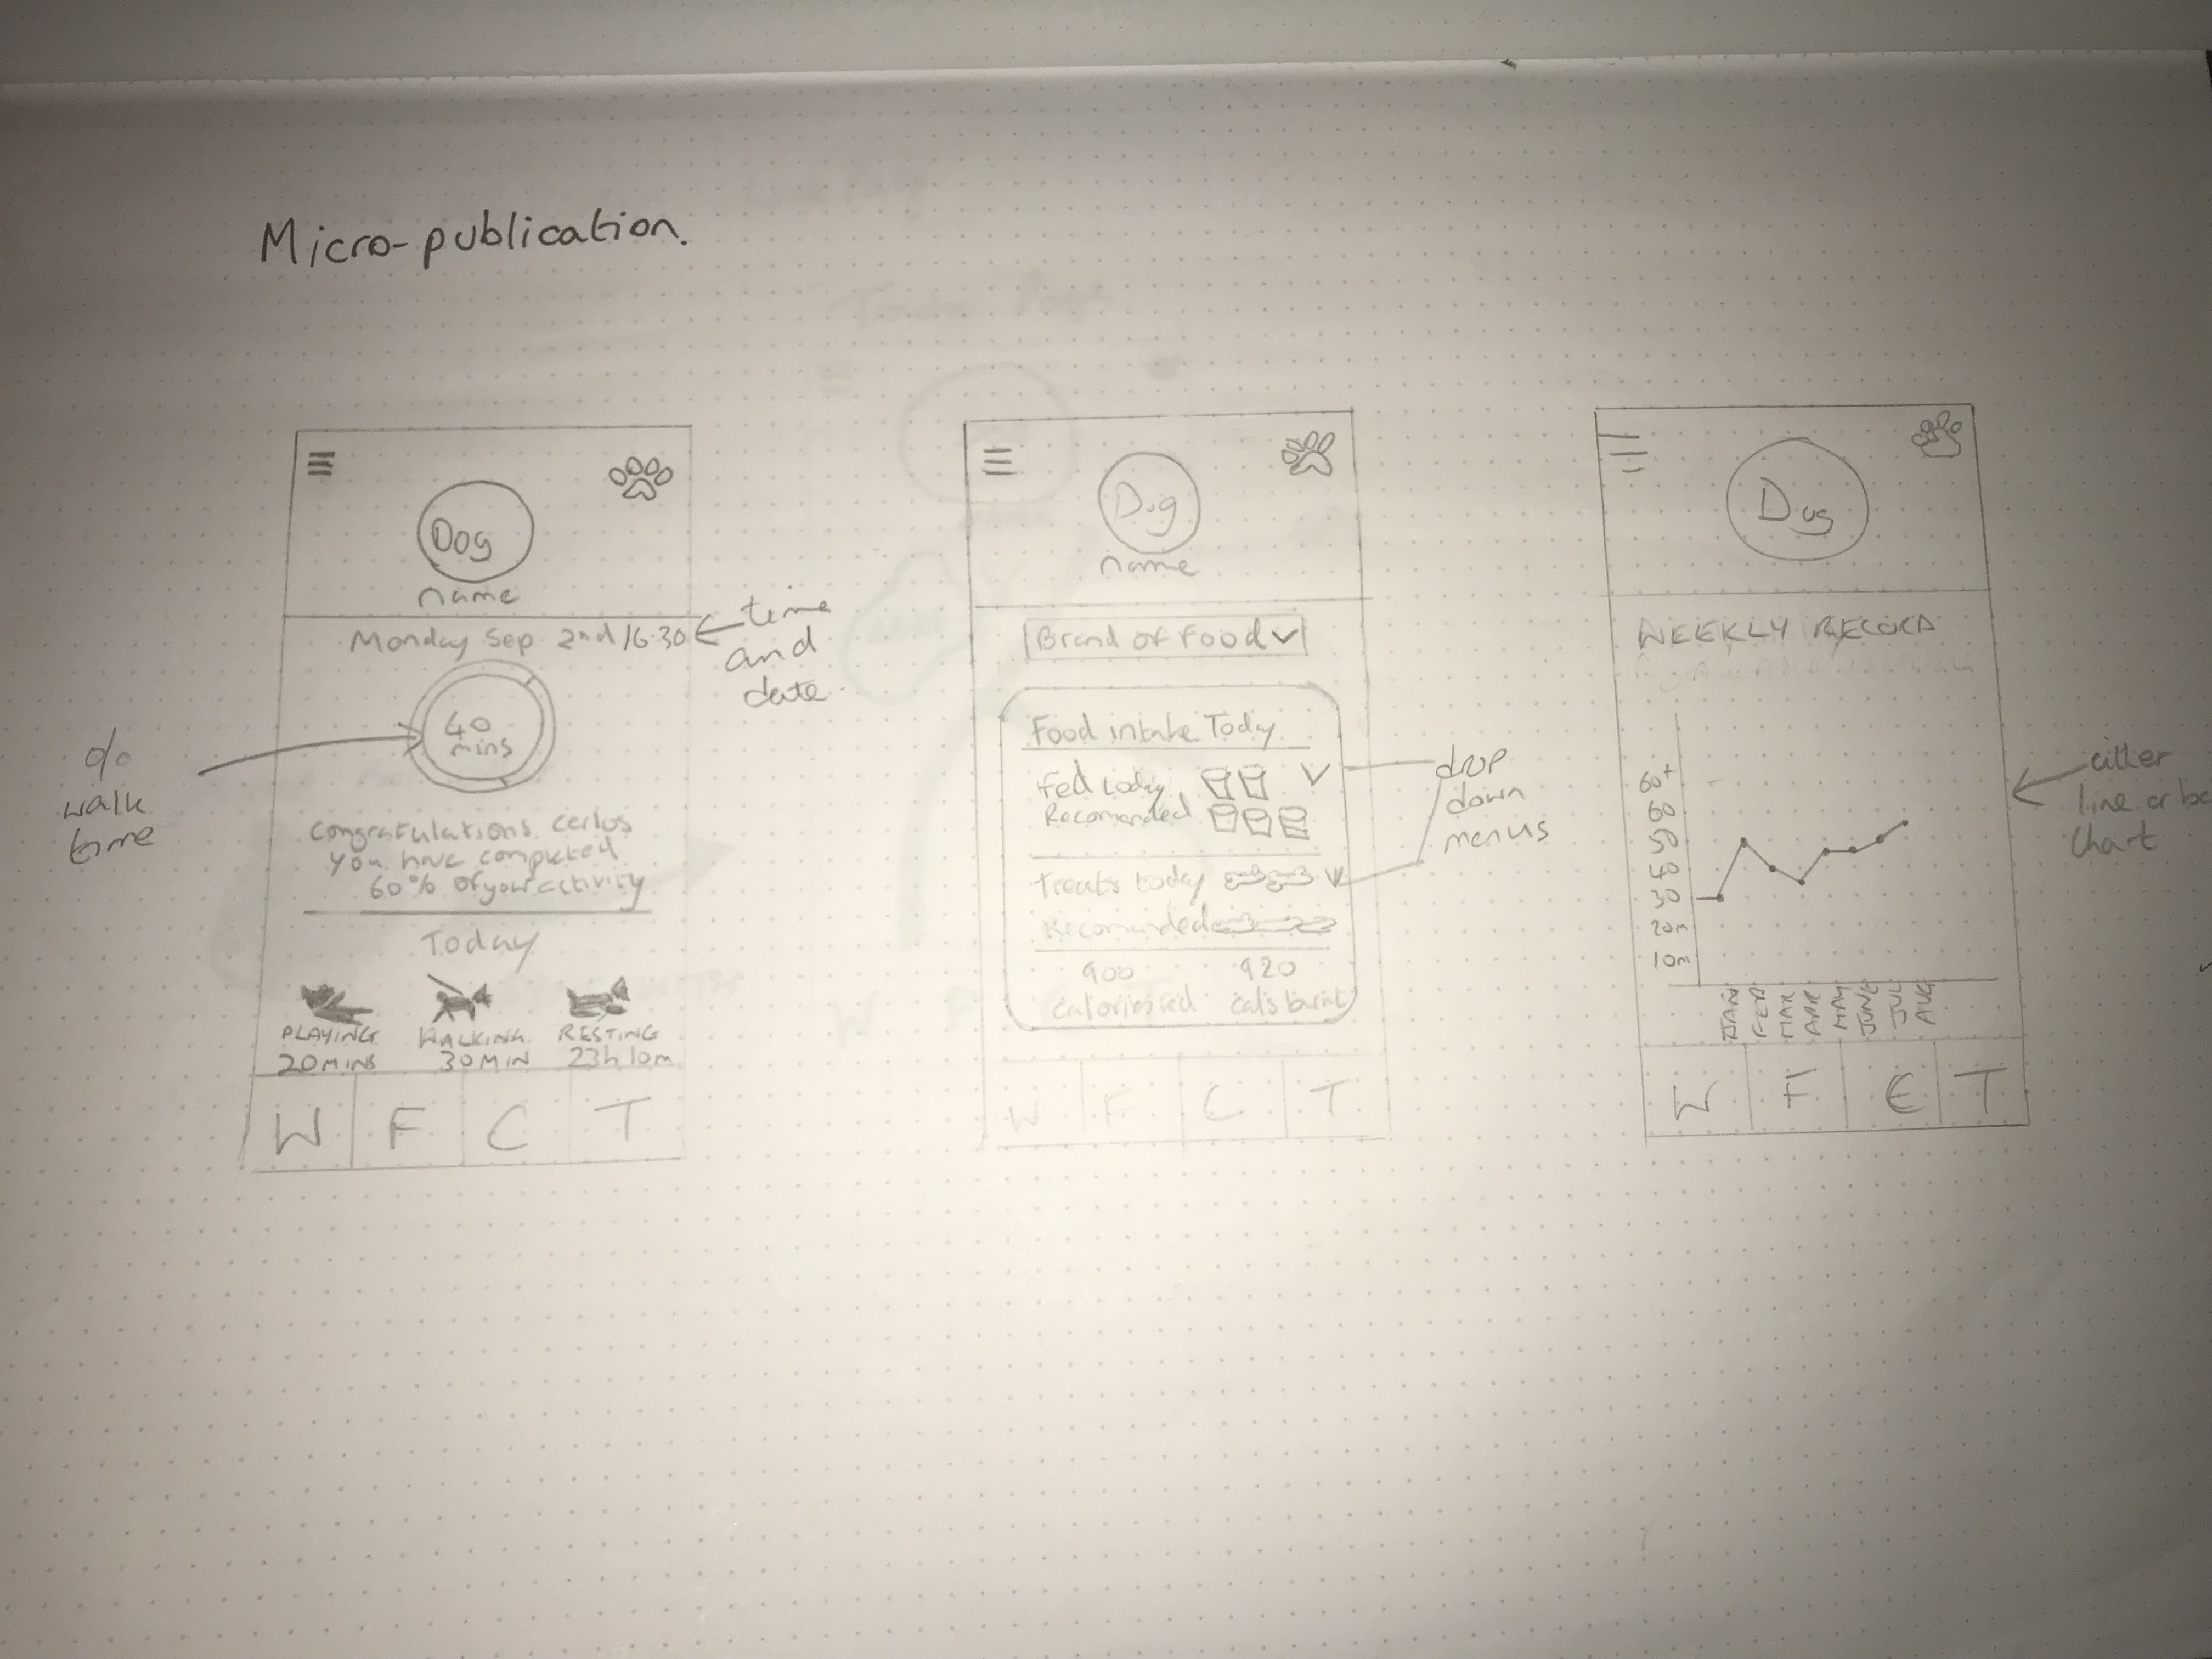 Micro-publication.
Dog
name
Monday Sep 2nd 16:30
time
and
date.
40
mins
%
walk
time
Congratulations Cerlos
you have completed
60% of your activity
Today
PLAYING
20MINS
WALKING
30MIN
RESTING
23h 10m
W F C T
Dog
name
Brand of Food
Food intake Today
Fed today
Recomended
Treats today
Recomended
900
calories fed
920
cals burnt
drop
down
menus
W F C T
Dog
WEEKLY RECORD
60+
60
50
40
30
20m
10m
JAN
FEB
MAR
APR
MAY
JUNE
JUL
AUG
either
line or
Chart
W F C T